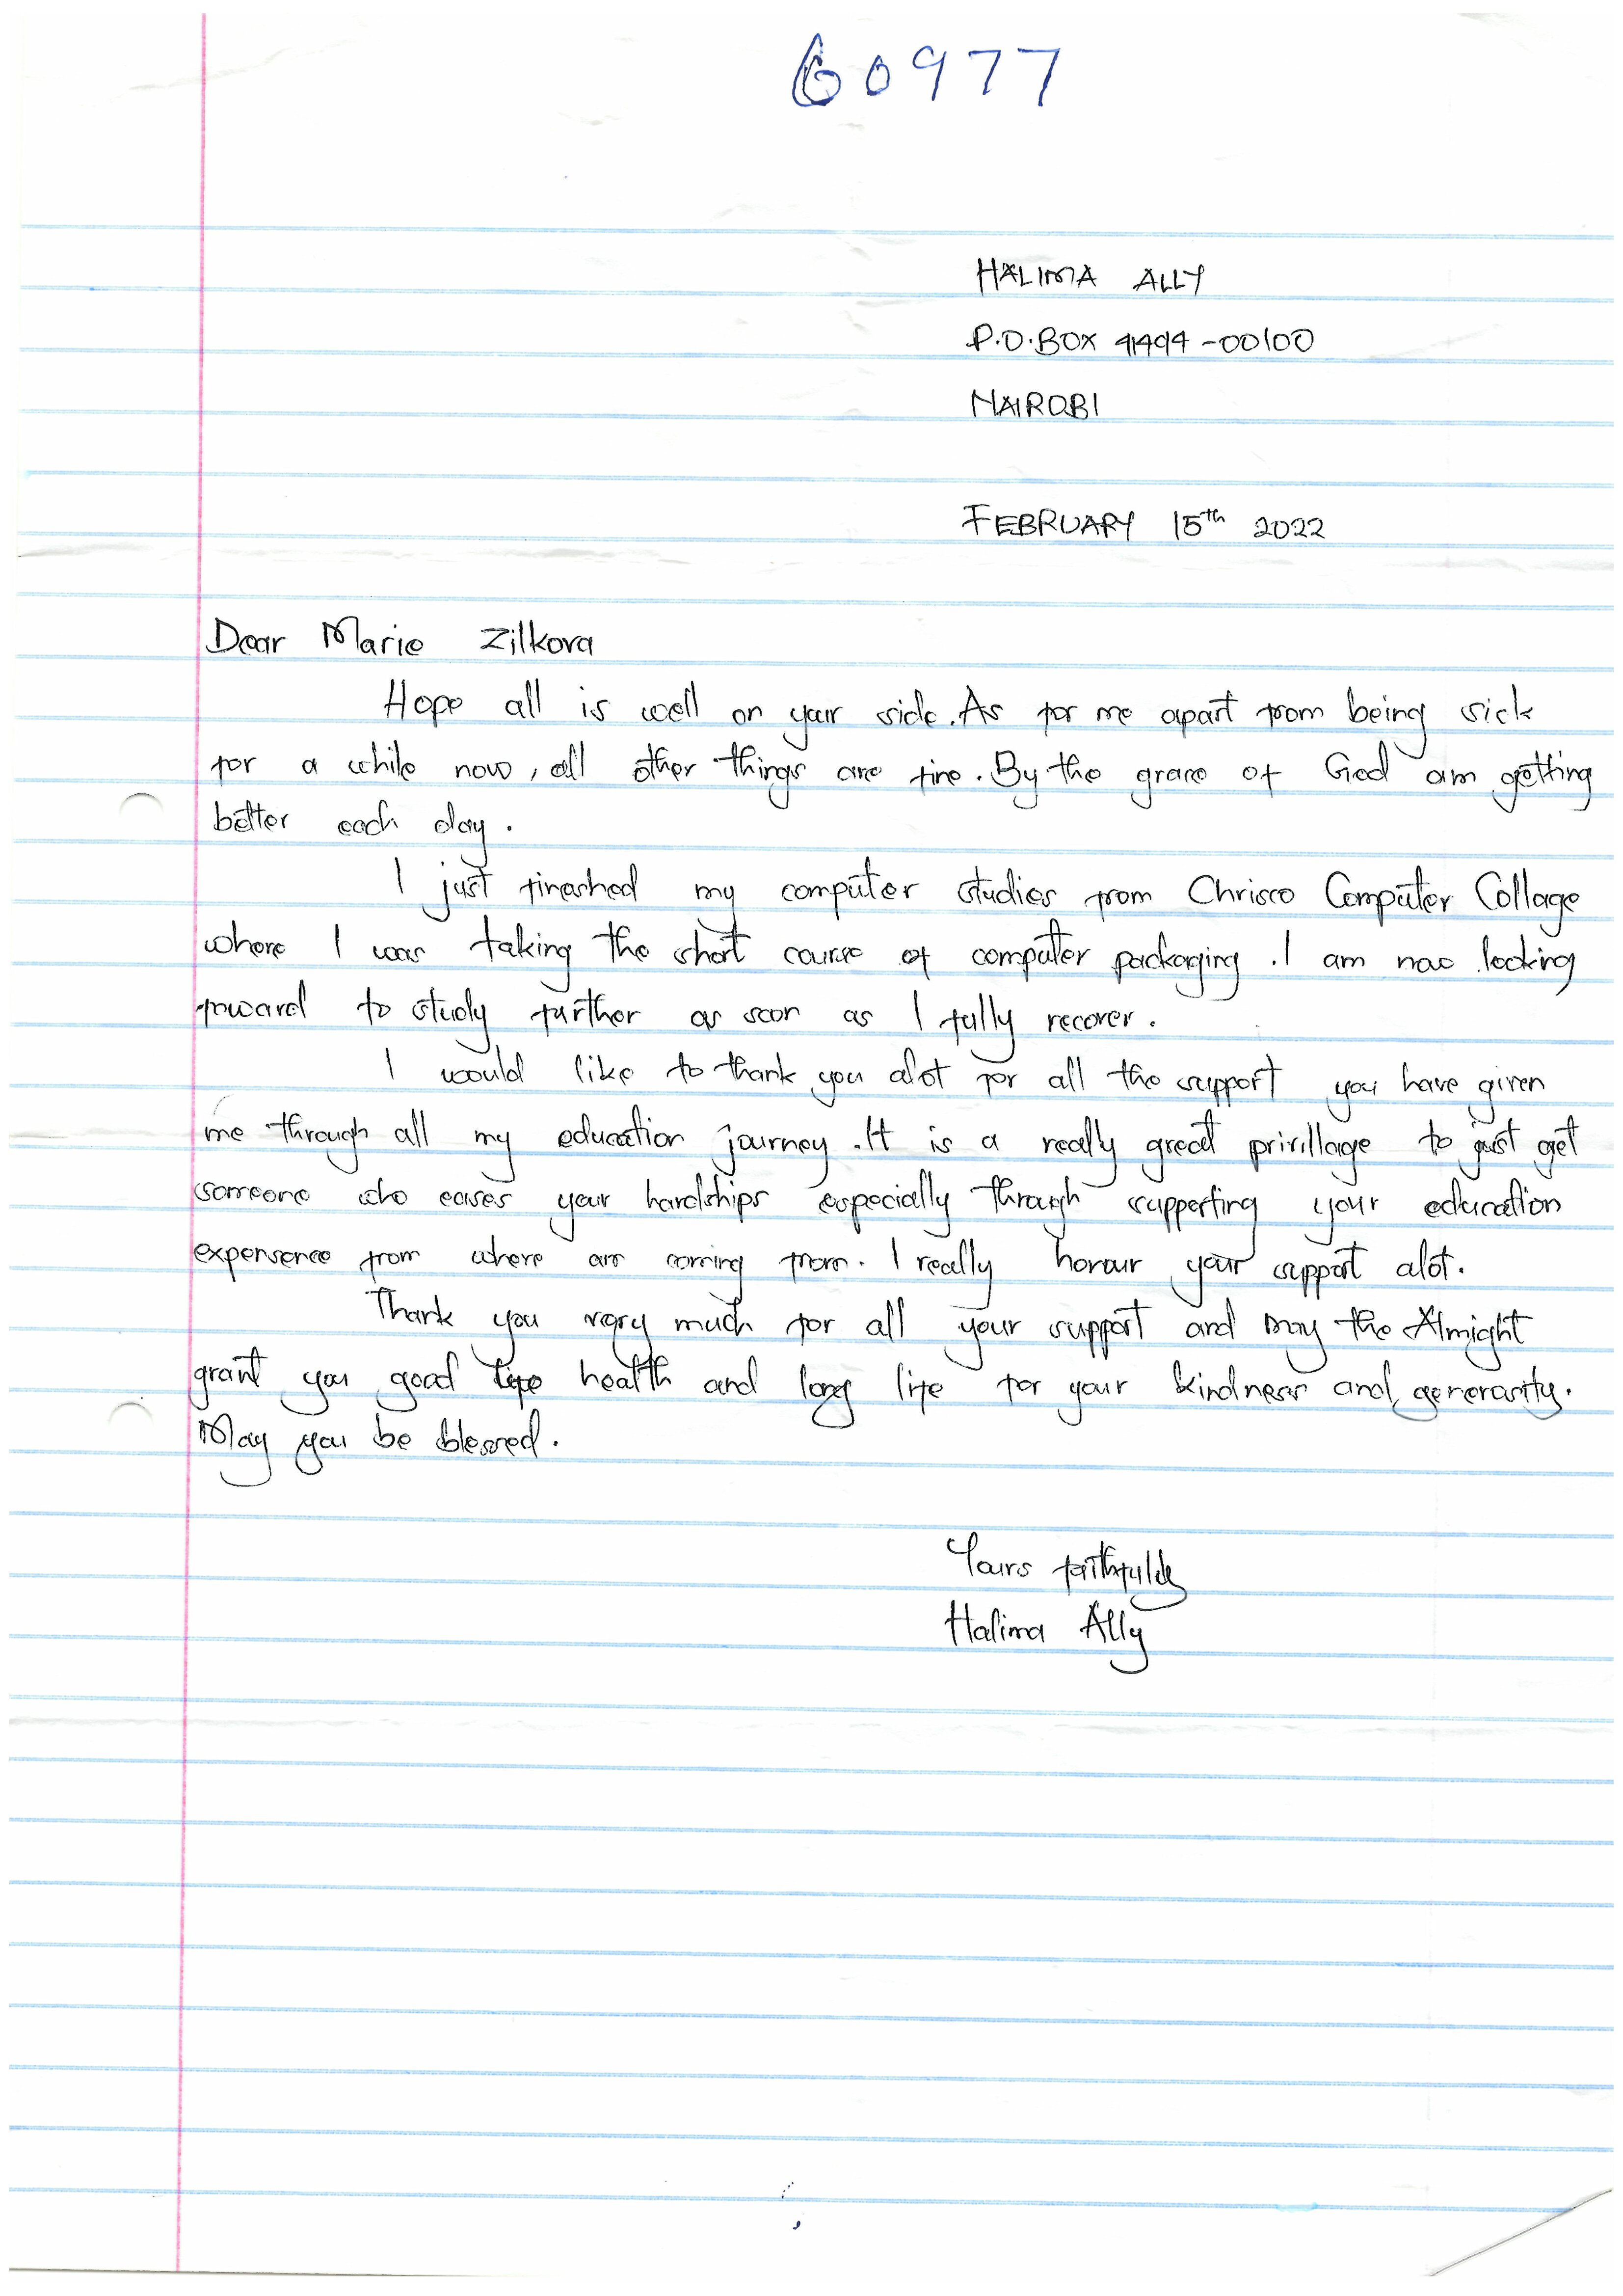 60977
HALIMA ALLY
P.O.BOX 41494-00100
NAIROBI
FEBRUARY 15th 2022
Dear Marie Zilkova
Hope all is well on your side. As for me apart from being sick
for a while now, all other things are fine. By the grace of God am getting
better each day.
I just fineshed my computer studies from Chrisco Computer Collage
where I was taking the short course of computer packaging. I am now looking
foward to study further as soon as I fully recover.
I would like to thank you alot for all the support you have given
me through all my education journey. It is a really great privillage to just get
someone who eases your hardships especially through supporting your education
expensence from where am coming from. I really honour your support alot.
Thank you very much for all your support and may the Almight
grant you good health and long life for your kindness and generosity.
May you be blessed.
Yours faithfully
Halima Ally